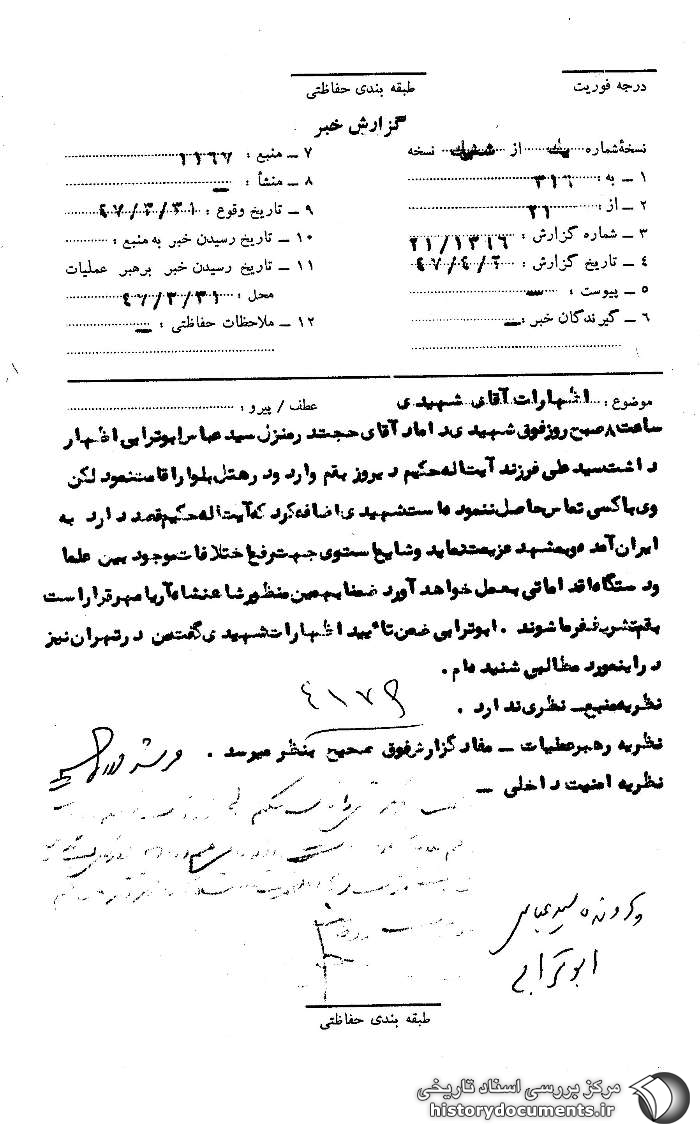 درجه فوریت
طبقه بندی حفاظتی
گزارش خبر
نسخهٔ شماره یک از شش نسخه
۱ ــ به: ۳۱۶
۲ ــ از: ۲۱
۳ ــ شماره گزارش: ۲۱/۱۳۱۶
۴ ــ تاریخ گزارش: ۴۷/۴/۲
۵ ــ پیوست: ــ
۶ ــ گیرندگان خبر: ــ
۷ ــ منبع: ۱۱۶۷
۸ ــ منشأ: ــ
۹ ــ تاریخ وقوع: ۴۷/۳/۳۱
۱۰ ــ تاریخ رسیدن خبر به منبع:
۱۱ ــ تاریخ رسیدن خبر برهبر عملیات
محل: ۴۷/۳/۳۱
۱۲ ــ ملاحظات حفاظتی: ــ
موضوع: اظهارات آقای شهیدی
عطف / پیرو:
ساعت ۸ صبح روز فوق شهیدی داماد آقای حجت در منزل سید عباس ابوترابی اظهار
داشت سید علی فرزند آیت اله حکیم دیروز بقم وارد و در هتل بلوار اقامت نمود لکن
وی با کسی تماس حاصل ننموده است شهیدی اضافه کرد که آیت اله حکیم قصد دارد به
ایران آمده و بمشهد عزیمت نماید و شایع است وی جهت رفع اختلافات موجود بین علما
و دستگاه اقداماتی بعمل خواهد آورد ضمنا بهمین منظور شاهنشاه آریامهر قرار است
بقم تشریف فرما شوند . ابوترابی ضمن تائید اظهارات شهیدی گفت من در تهران نیز
در اینمورد مطالبی شنیده ام .
نظریه منبع ــ نظری ندارد .
۴۱۷۹
نظریه رهبر عملیات ــ مفاد گزارش فوق صحیح بنظر میرسد .
نظریه امنیت داخلی ــ
پرونده سید عباس
ابوترابی
طبقه بندی حفاظتی
مرکز بررسی اسناد تاریخی
historydocuments.ir